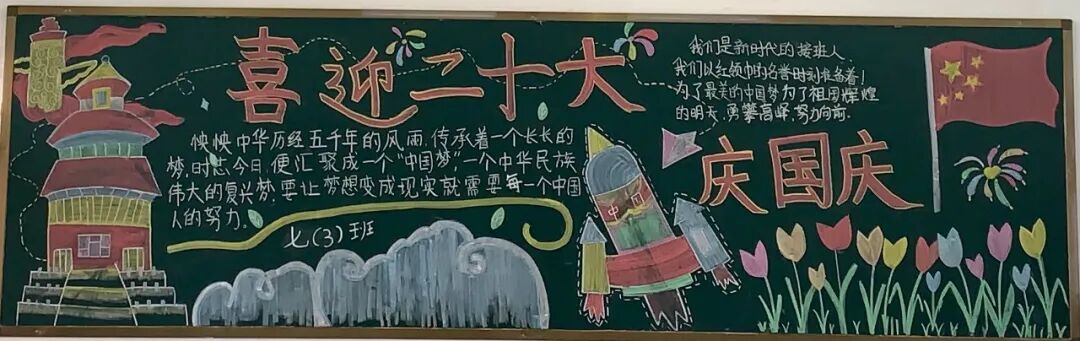 喜迎二十大
怏怏中华历经五千年的风雨,传承着一个长长的
梦,时志今日,便汇聚成一个“中国梦”一个中华民族
伟大的复兴梦,要让梦想变成现实就需要每一个中国
人的努力。
七(3)班
中国
我们是新时代的接班人
我们以红领巾的名誉时刻准备着!
为了最美的中国梦为了祖国辉煌
的明天,勇攀高峰,努力向前.
庆国庆